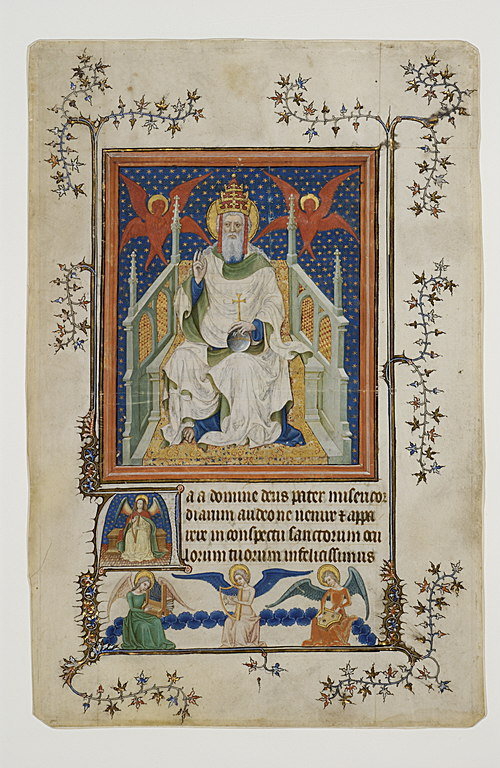 Aa a domine deus pater misericor
diarum audeo ne uenire ⁊ appa
rere in conspectu sanctorum ocu
lorum tuorum infelicissimus